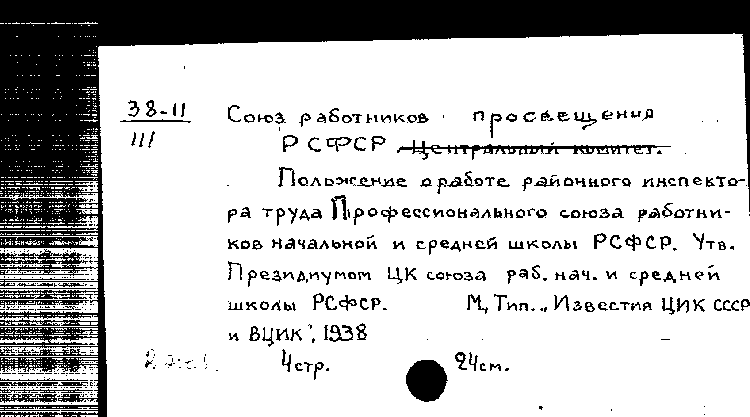 38-11 Союз работников просвещения
III РСФСР Центральный комитет.
Положение о работе районного инспекто-
ра труда Профессионального союза работни-
ков начальной и средней школы РСФСР. Утв.
Президиумом ЦК союза раб. нач. и средней
школы РСФСР. М, Тип. „Известия ЦИК СССР
и ВЦИК", 1938
4 стр. 24 см.